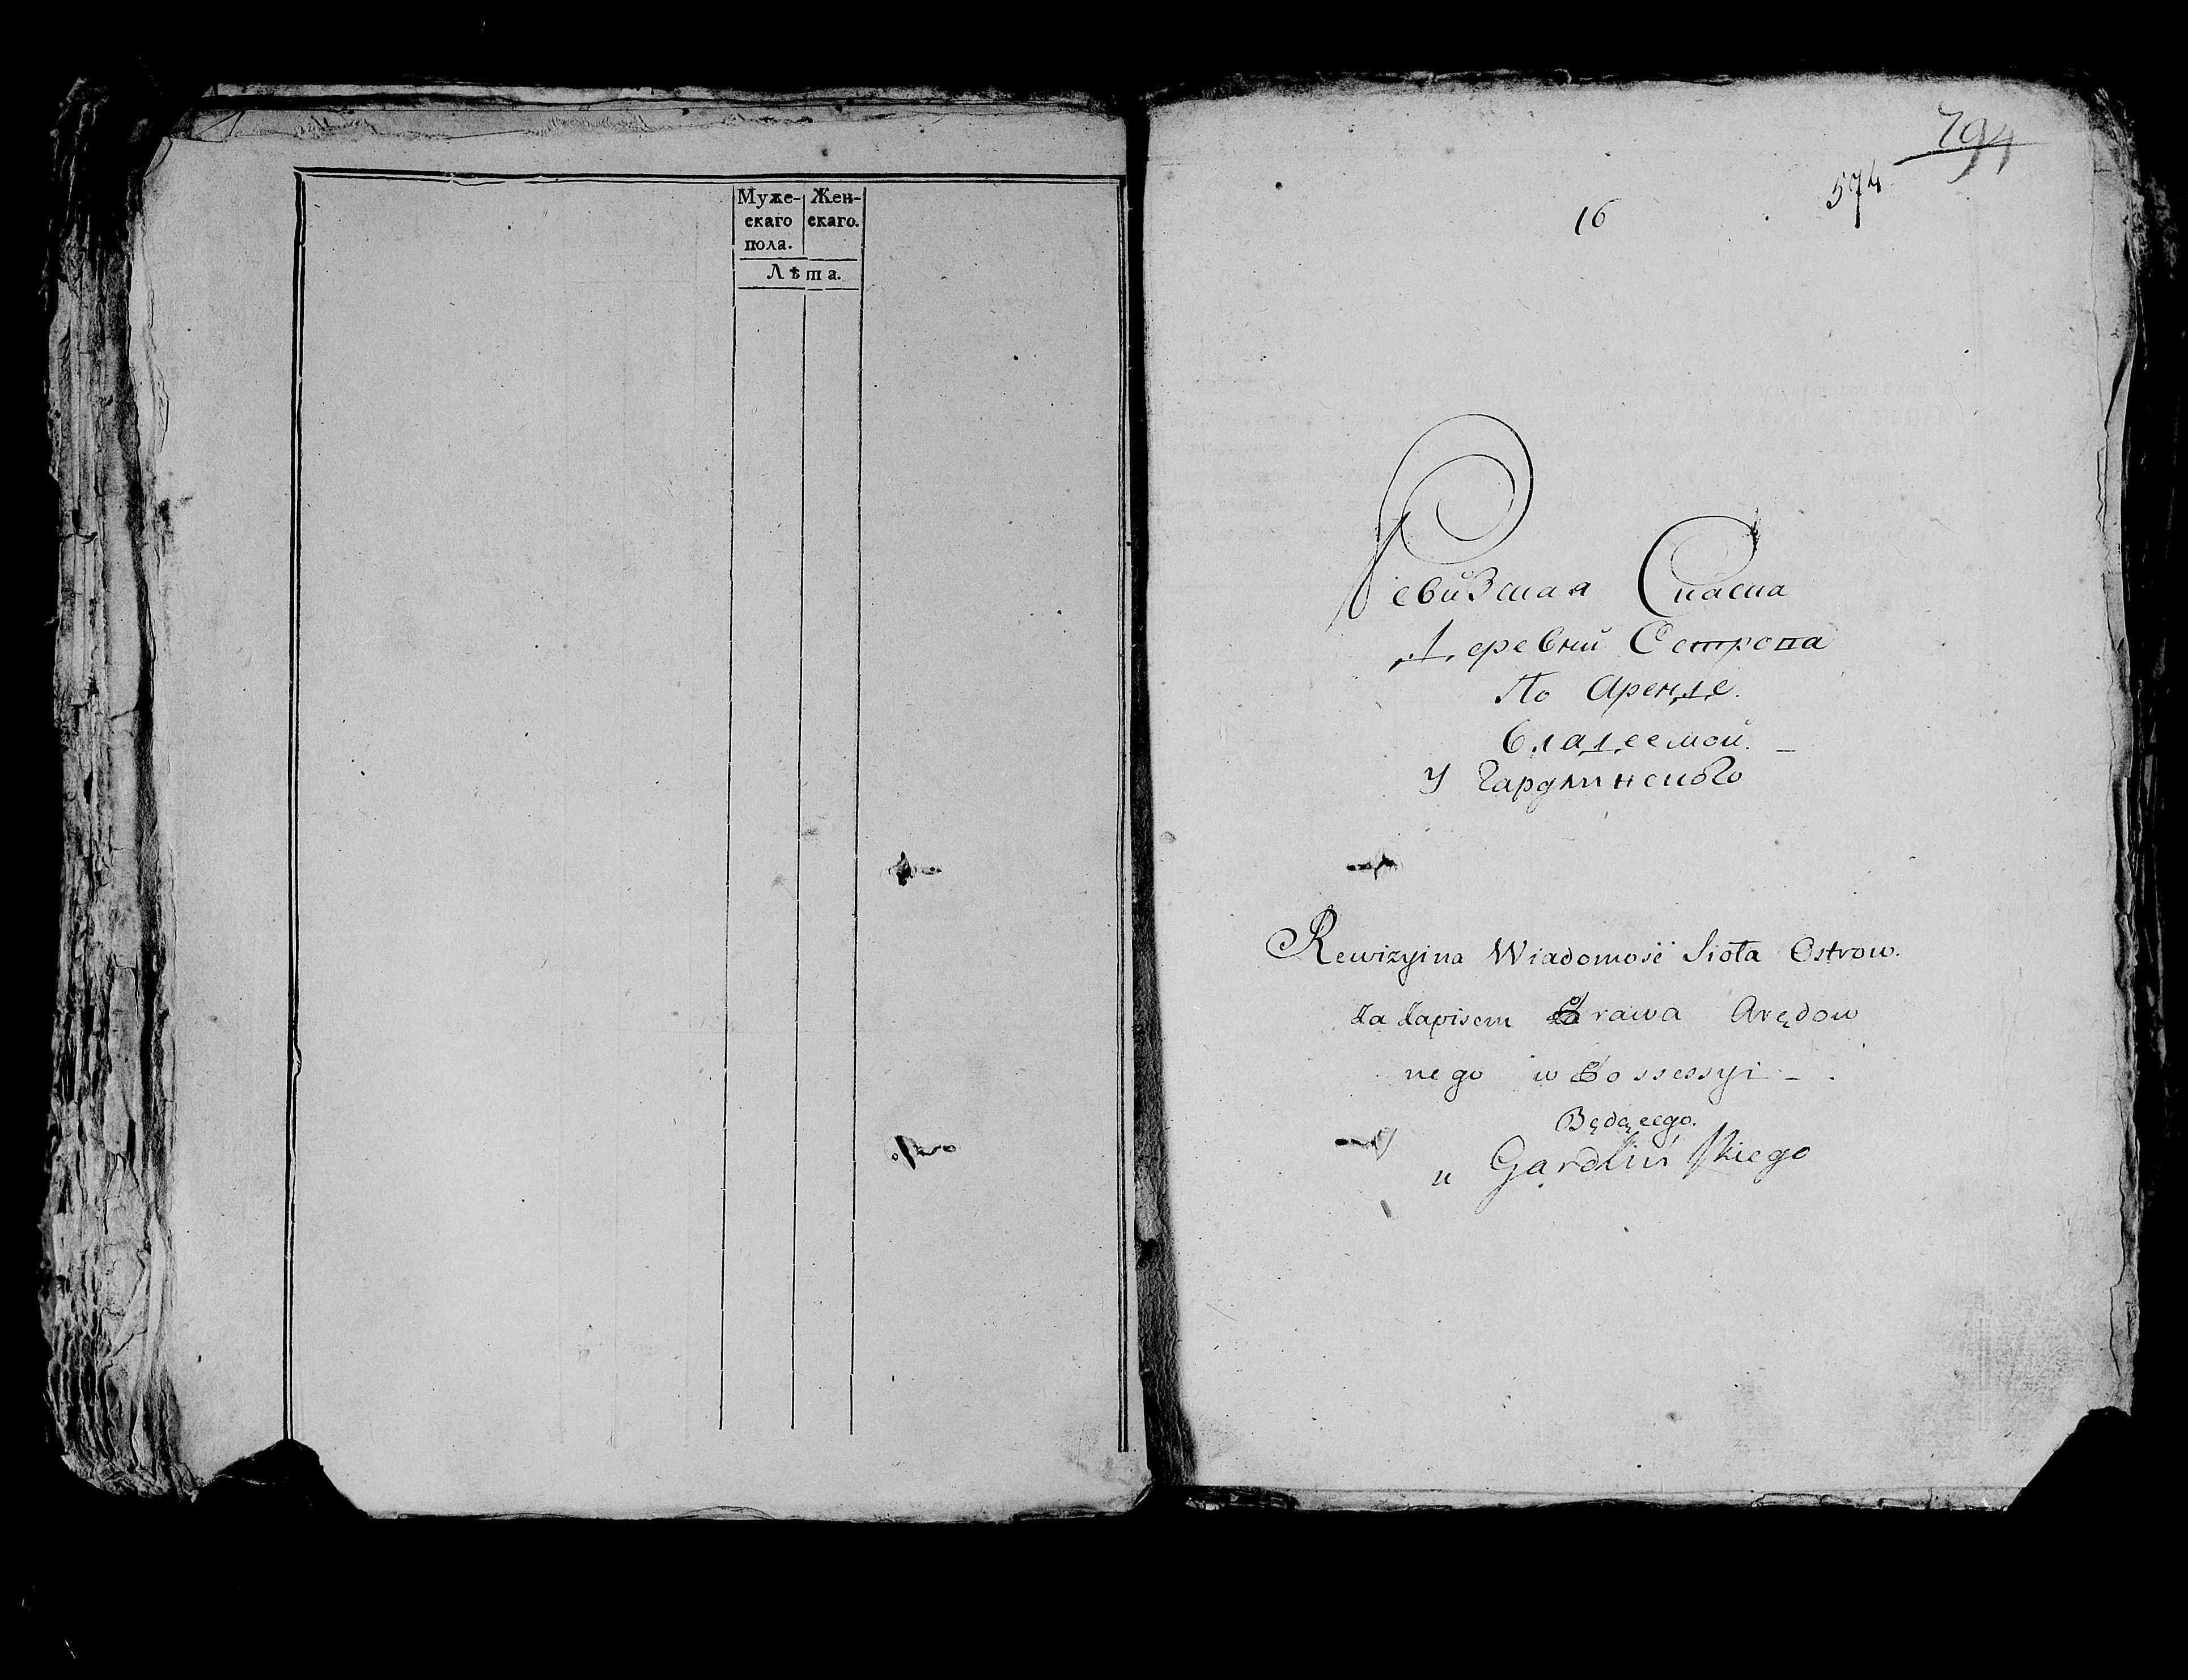 Муже- Жен-
скаго скаго.
пола.
Лѣта.
794
574
16
Ревизская Скаска
Деревни Острова
По Аренде
владеемой. –
У Гардлинского
Rewizyina Wiadomość Sioła Ostrow.
Za Zapisem Prawa Arędow
nego w Possessyi – .
Będącego.
u Gardlinskiego